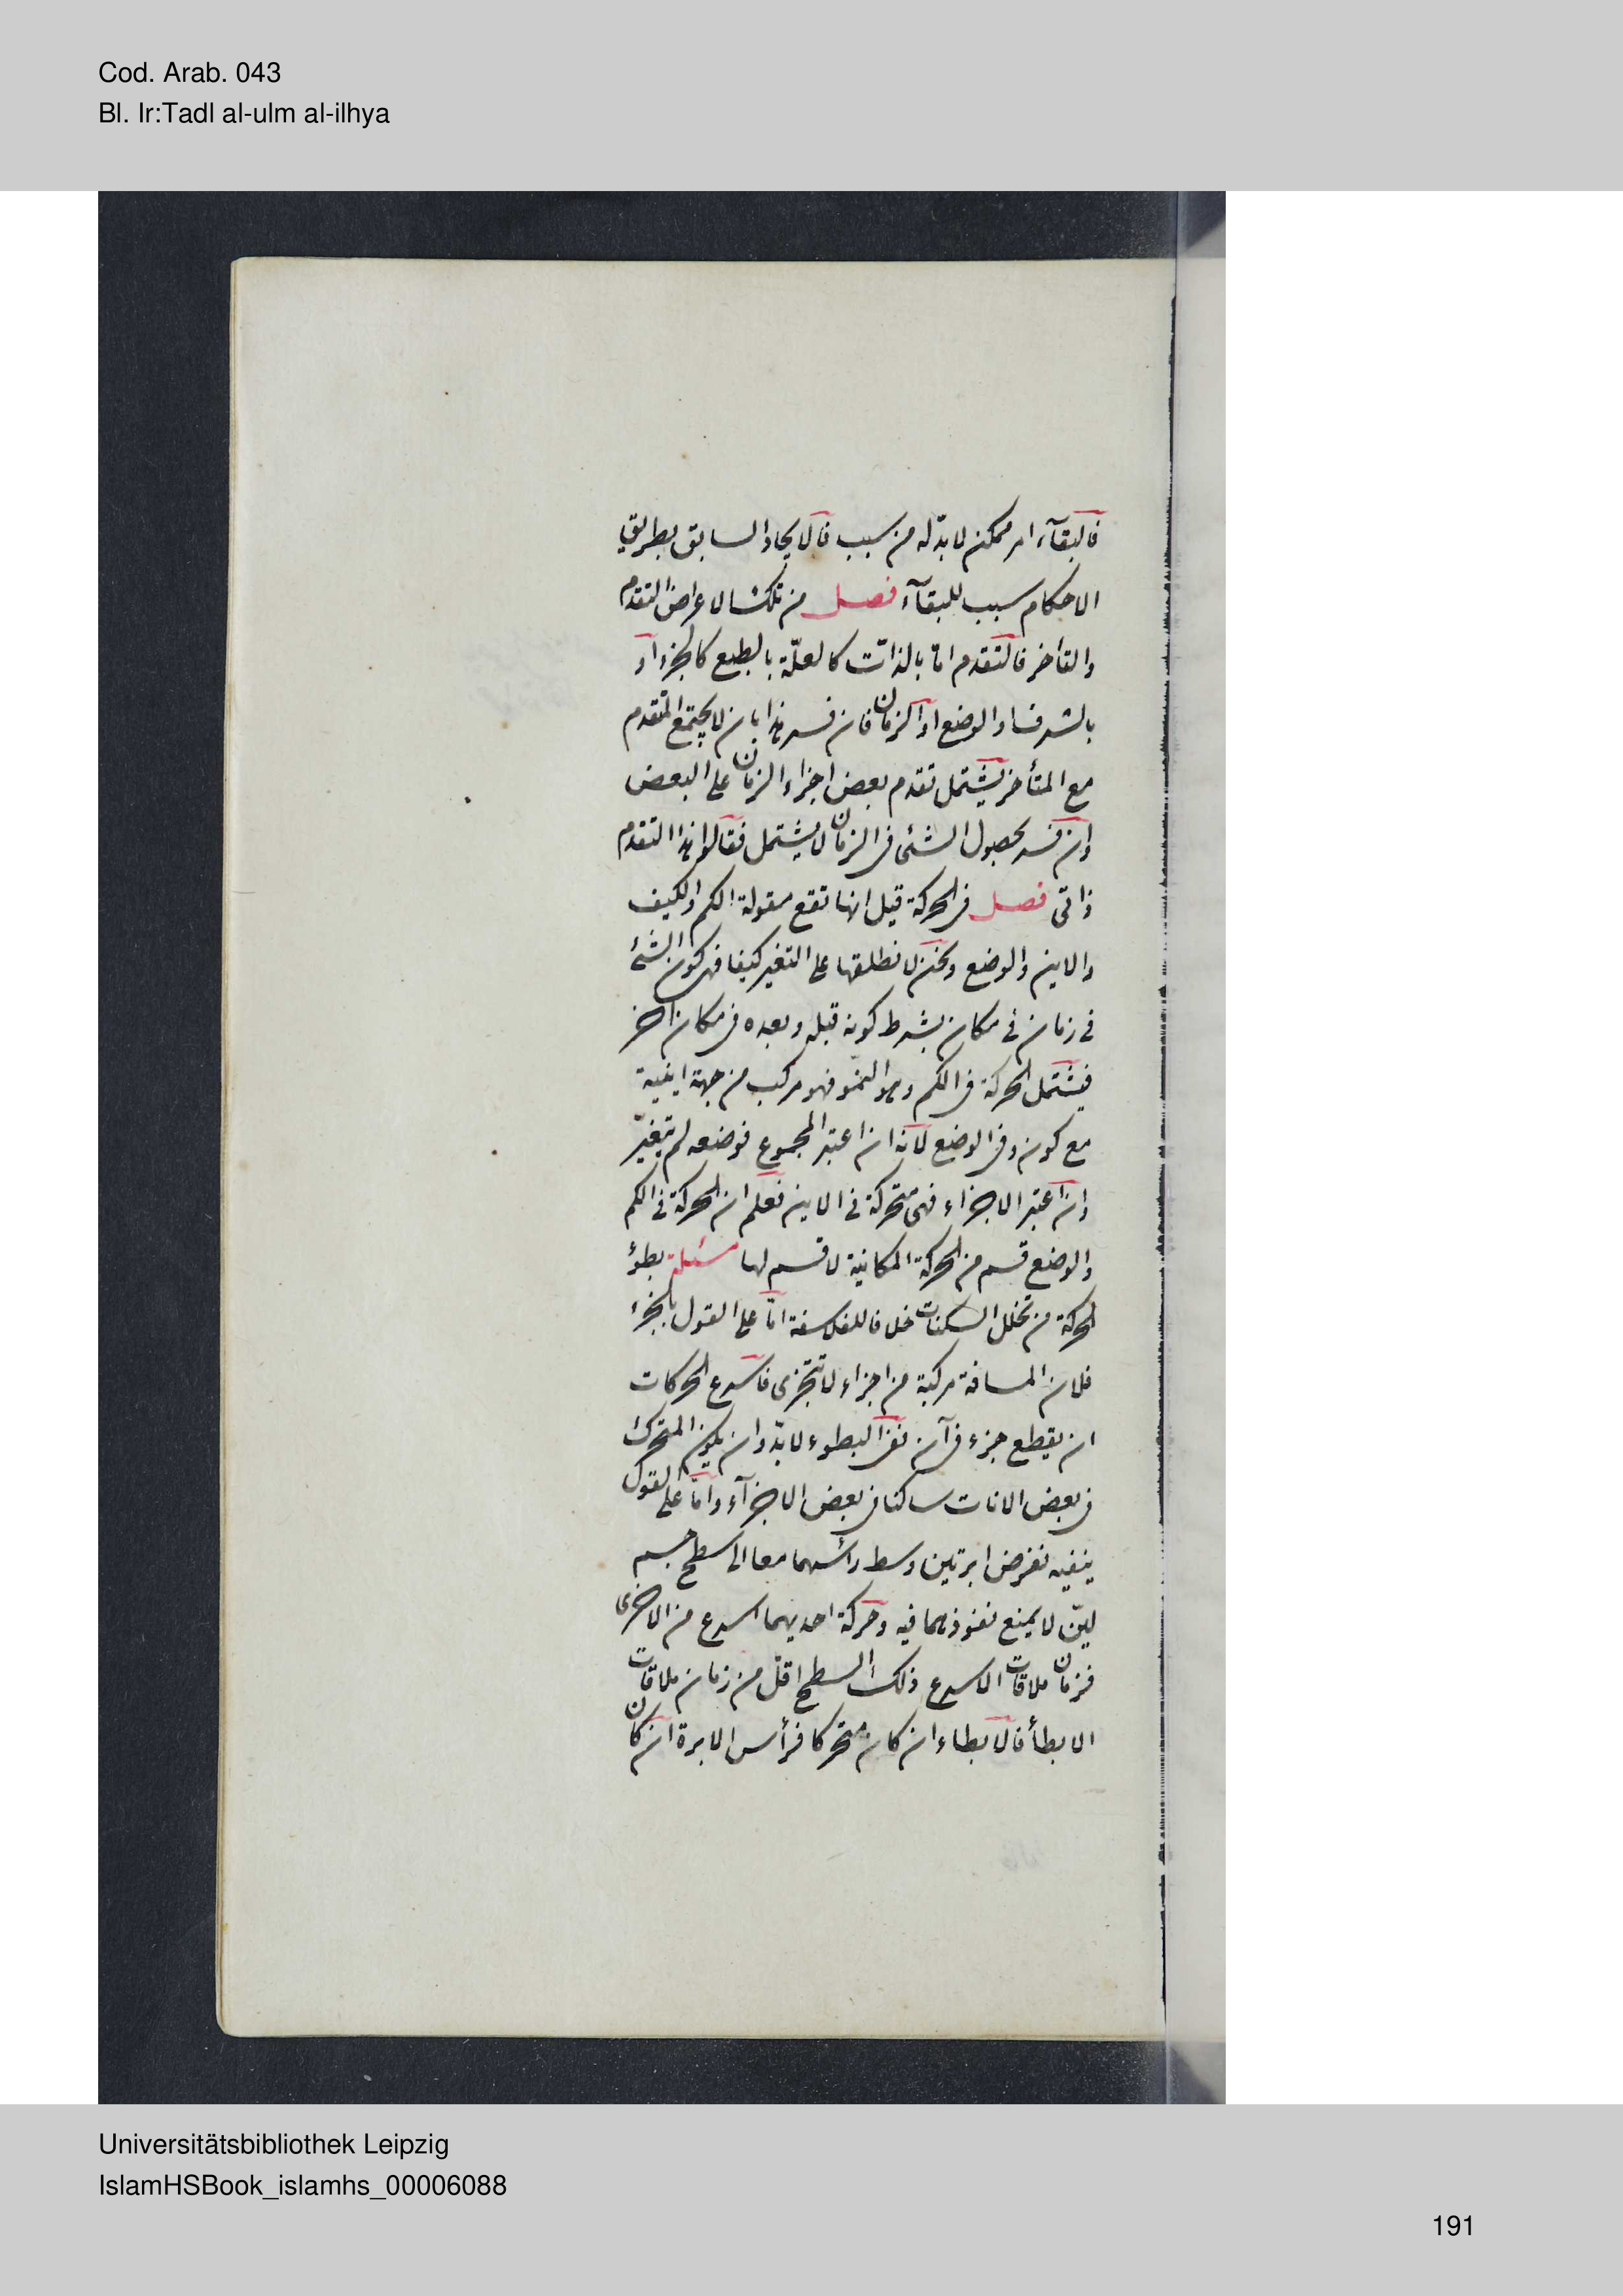 Cod. Arab. 043
Bl. Ir:Tadl al-ulm al-ilhya
فالبقآء امر ممكن لا بدّ له من سبب فالايجاد السابق بطريق
الاحكام سبب للبقآء فصل من تلك الاعراض التقدم
والتأخر فالتقدم امّا بالذات كالعلّة بالطبع كالجزء او
بالشرف او الوضع او الزمان فان فسر هذا بان لا يجتمع المتقدم
مع المتأخر يشتمل تقدم بعض اجزاء الزمان على البعض
وان فسر بحصول الشئ فى الزمان لا يشتمل فقالوا هذا التقدم
ذاتى فصل فى الحركة قيل انها تقع مقولة الكم والكيف
والاين والوضع ونحن لا نطلقها على التغير كيفا فهى كون الشئ
فى زمان فى مكان بشرط كونه قبله وبعده فى مكان اخر
فيشتمل الحركة فى الكم وهو النمو فهو مركب من جهة اينية
مع كون وفى الوضع لانه ان اعتبر المجموع فوضعه لم يتغيّر
وان اعتبر الاجزاء فهى متحركة فى الاين فعلم ان الحركة فى الكم
والوضع قسم من الحركة المكانية لا قسم لها مسئلة بطؤ
الحركة من تخلل السكنات خلافا للفلاسفة امّا على القول بالجزء
فلان المسافة مركبة من اجزاء لا تتجزى فاسرع الحركات
ان يقطع جزء فى آن ففى البطوء لا بدّ وان يكون المتحرك
فى بعض الانات ساكنا فى بعض الاجزآء وامّا على القول
بنفيه نفرض ابرتين وسط رأسهما معا الى سطح جسم
ليّن لا يمنع نفوذهما فيه وحركة احديهما اسرع من الاخرى
فزمان ملاقات الاسرع ذلك السطح اقل من زمان ملاقات
الابطأ فالابطاء ان كان متحركا فرأس الابرة ان كان
Universitätsbibliothek Leipzig
IslamHSBook_islamhs_00006088
191